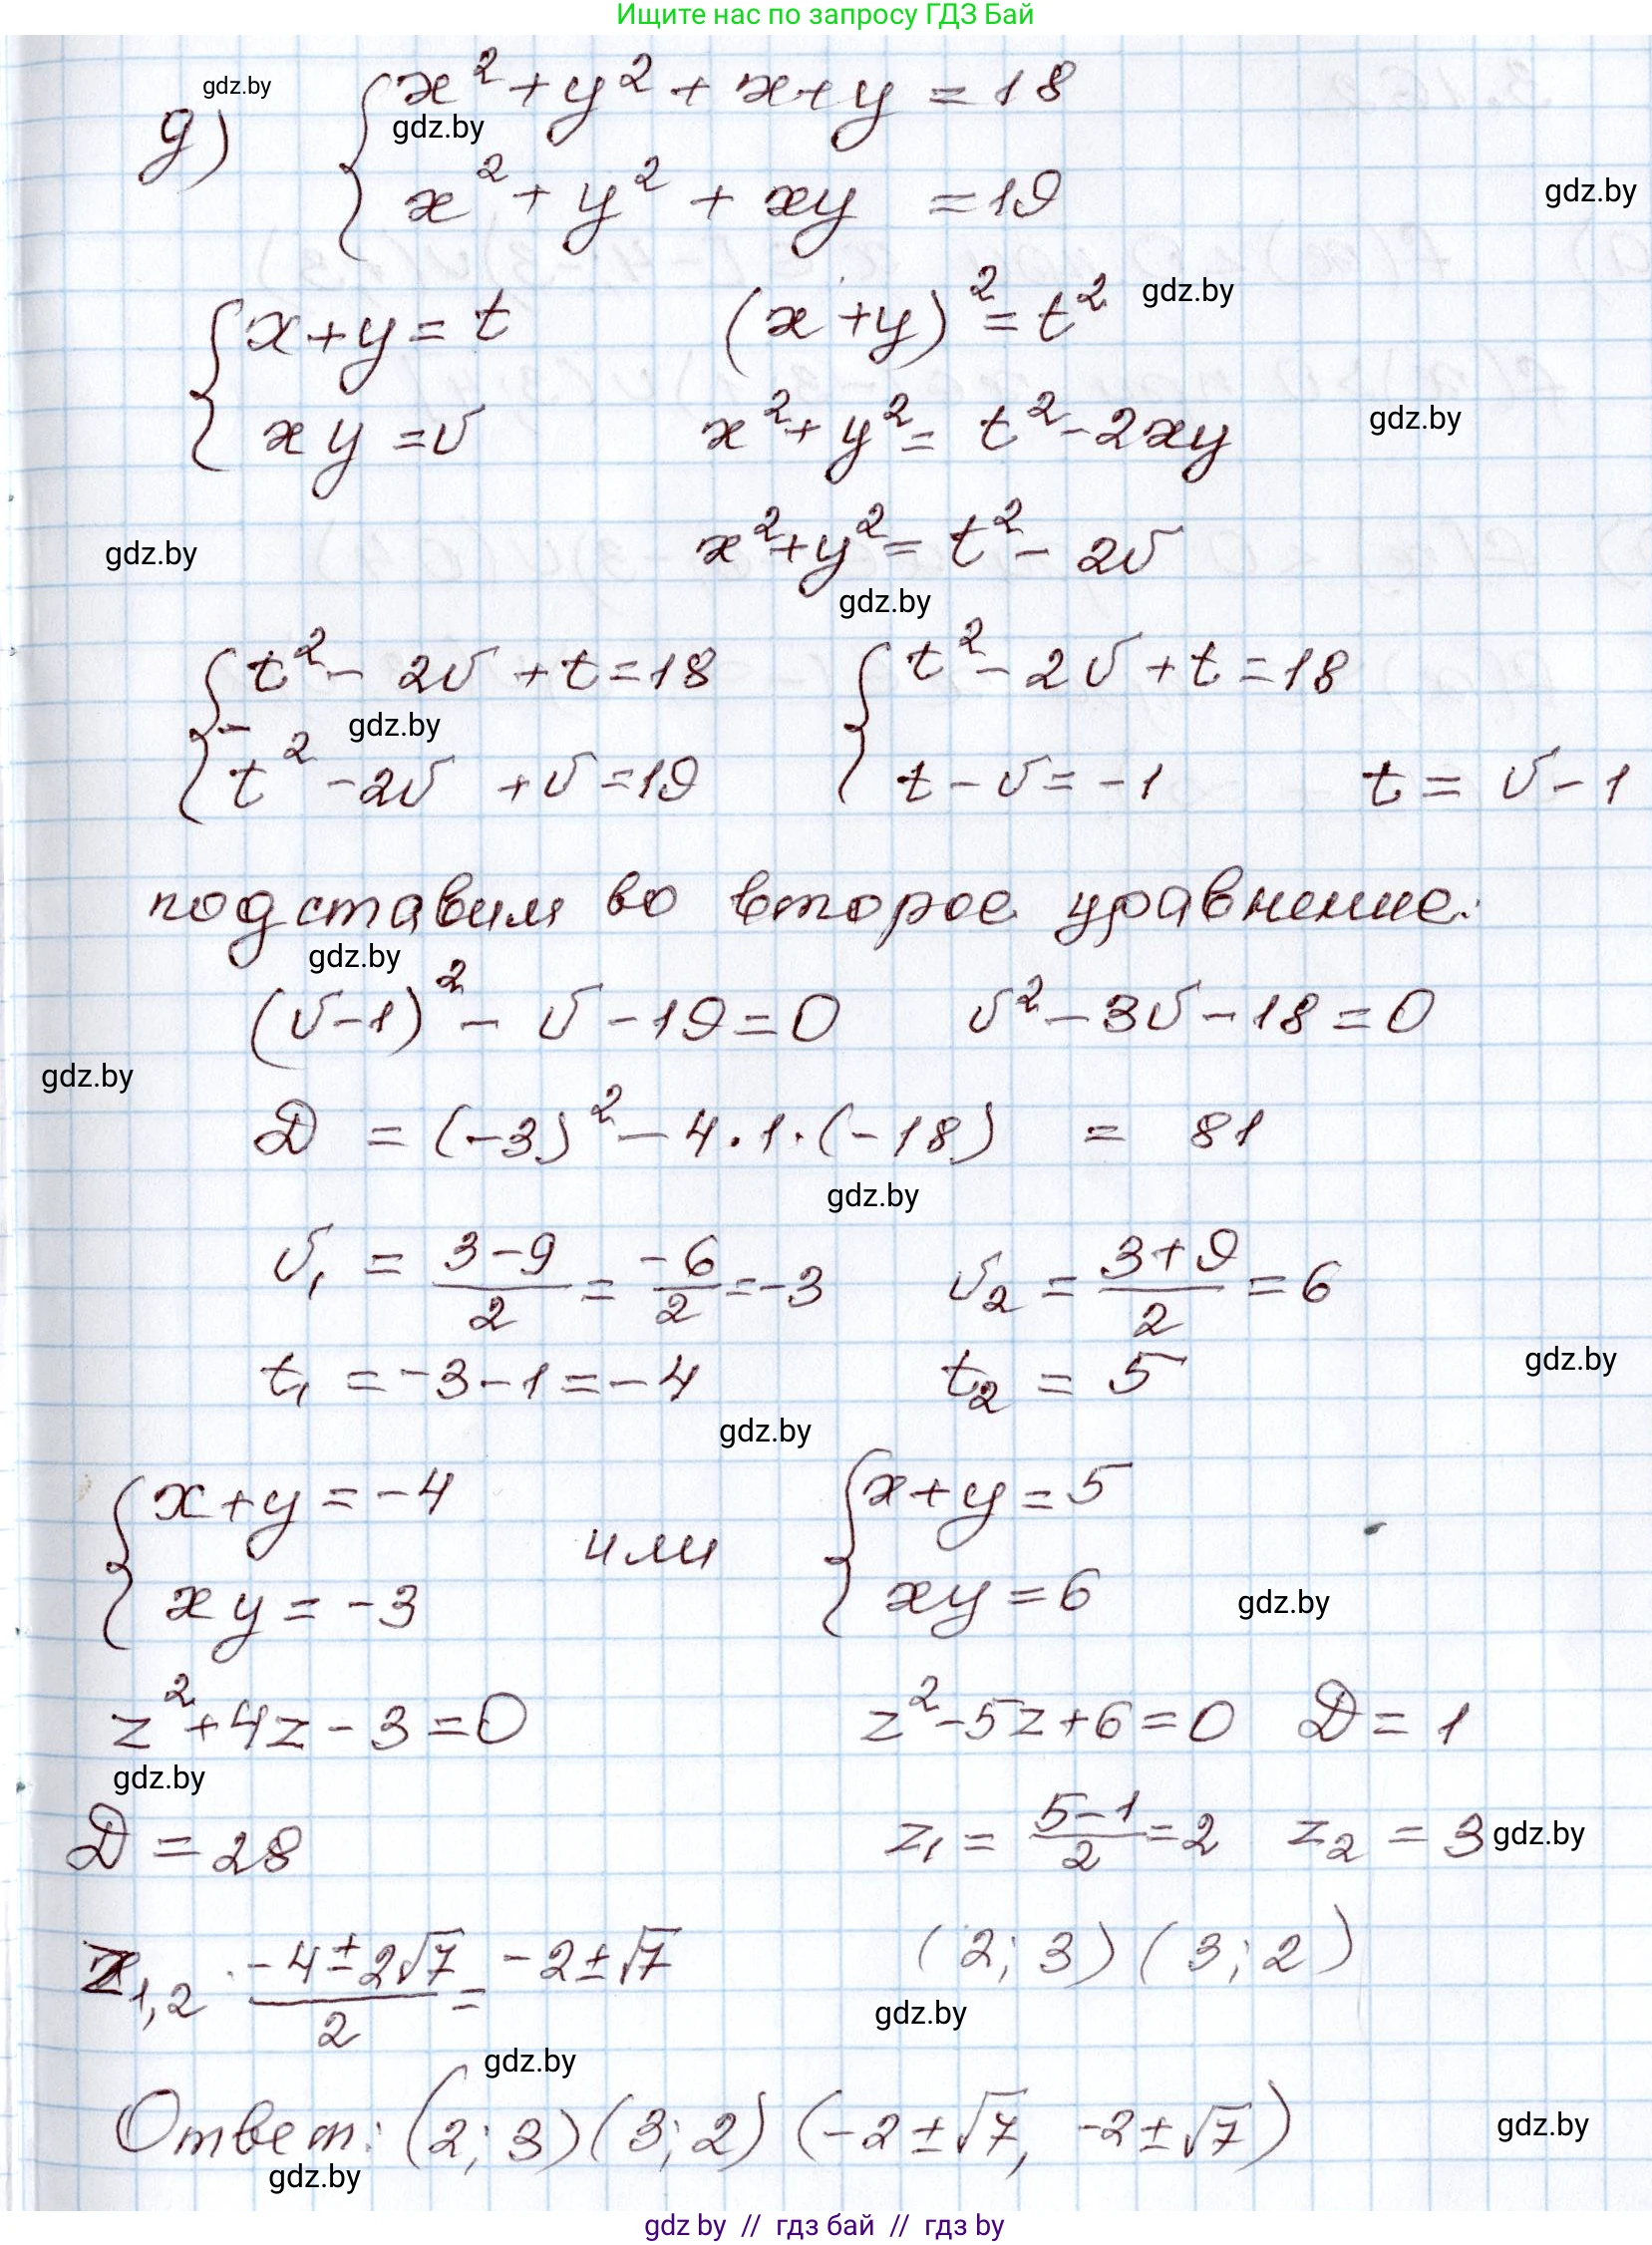 Ищите нас по запросу ГДЗ Бай
gdz.by
д) { x² + y² + x + y = 18
gdz.by
x² + y² + xy = 19
gdz.by
{ x + y = t (x + y)² = t² gdz.by
xy = v x² + y² = t² - 2xy gdz.by
gdz.by x² + y² = t² - 2v
gdz.by
{ t² - 2v + t = 18 { t² - 2v + t = 18
- gdz.by
t² - 2v + v = 19 t - v = -1 t = v - 1
подставим во второе уравнение:
gdz.by
(v-1)² - v - 19 = 0 v² - 3v - 18 = 0
gdz.by
D = (-3)² - 4·1·(-18) = 81
gdz.by
v₁ = (3-9)/2 = -6/2 = -3 v₂ = (3+9)/2 = 6
t₁ = -3 - 1 = -4 t₂ = 5 gdz.by
gdz.by
{ x + y = -4 или { x + y = 5
xy = -3 xy = 6 gdz.by
z² + 4z - 3 = 0 z² - 5z + 6 = 0 D = 1
gdz.by
D = 28 z₁ = (5-1)/2 = 2 z₂ = 3 gdz.by
z₁,₂ (-4 ± 2√7)/2 = -2 ± √7 (2; 3) (3; 2)
gdz.by
gdz.by
Ответ: (2; 3) (3; 2) (-2 ± √7, -2 ± √7) gdz.by
gdz.by
gdz by // гдз бай // гдз by